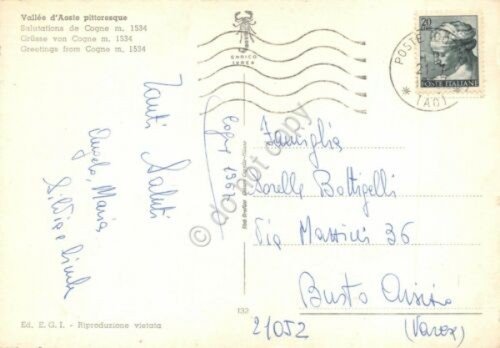 Vallée d'Aoste pittoresque
Salutations de Cogne m. 1534
Grüsse von Cogne m. 1534
Greetings from Cogne m. 1534
ENRICO
20
POSTE ITALIANE
(AO)
Cogne 1967
Tanti Saluti
Angelo, Maria
Silvia e
Famiglia
Sorelle Bottigelli
Via 36
Busto Arsizio
21052
(Varese)
132
Ed. E. G. I. - Riproduzione vietata
do not copy